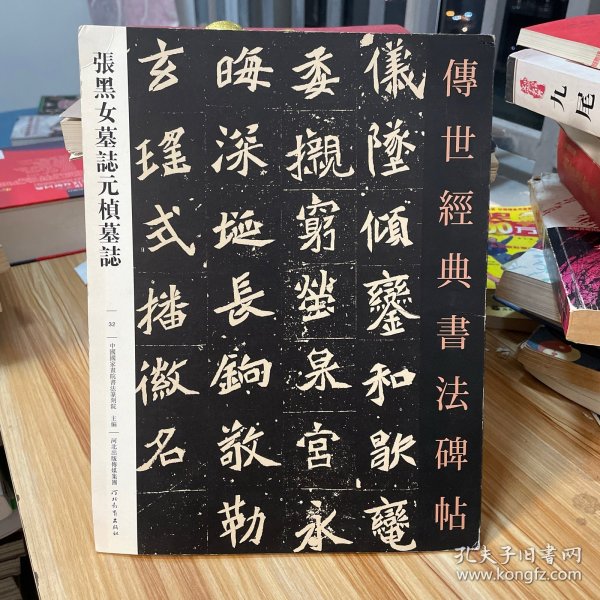 傳世經典書法碑帖
儀墜傾鑾和歇
委櫬窮塋泉宮永
晦深埏長銄敬勒
玄瑤式播徽名
張黑女墓誌元楨墓誌
32
中國國家畫院書法篆刻院 主編
河北出版傳媒集團
河北教育出版社
九尾
孔夫子旧书网
www.kongfz.com